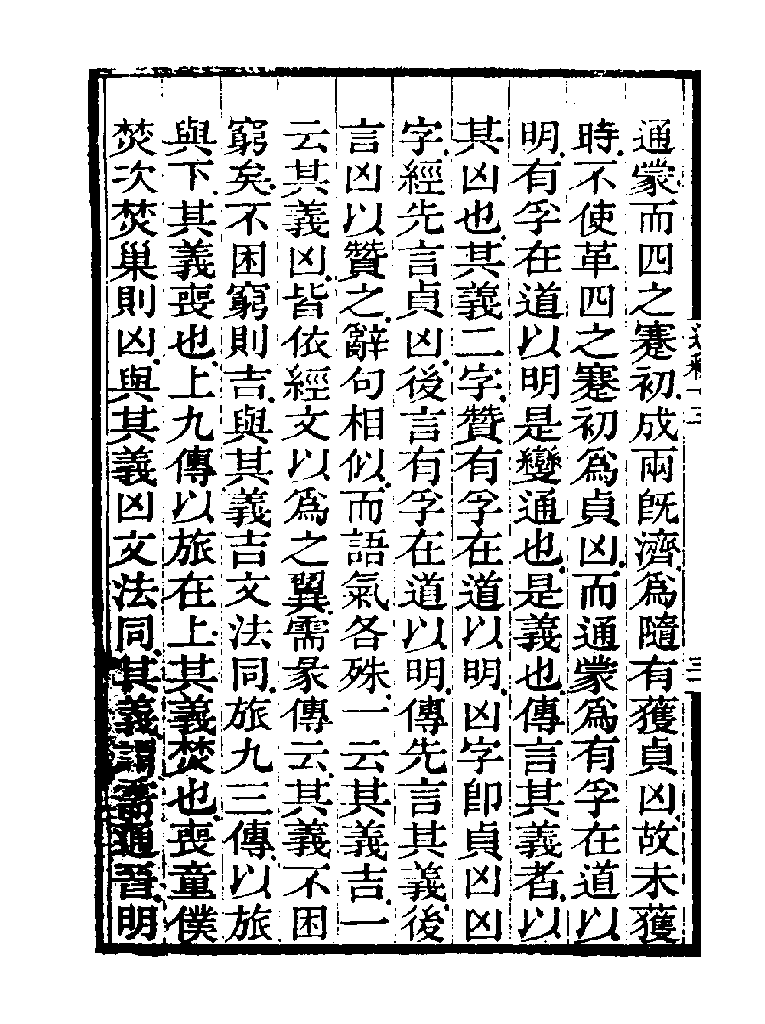 通蒙而四之蹇初成兩旣濟爲隨有獲貞凶故未獲
時不使革四之蹇初爲貞凶而通蒙爲有孚在道以
明有孚在道以明是變通也是義也傳言其義者以
其凶也其義二字贊有孚在道以明凶字卽貞凶凶
字經先言貞凶後言有孚在道以明傳先言其義後
言凶以贊之辭句相似而語氣各殊一云其義吉一
云其義凶皆依經文以爲之翼需彖傳云其義不困
窮矣不困窮則吉與其義吉文法同旅九三傳以旅
與下其義喪也上九傳以旅在上其義焚也喪童僕
焚次焚巢則凶與其義凶文法同其義謂需通晉明